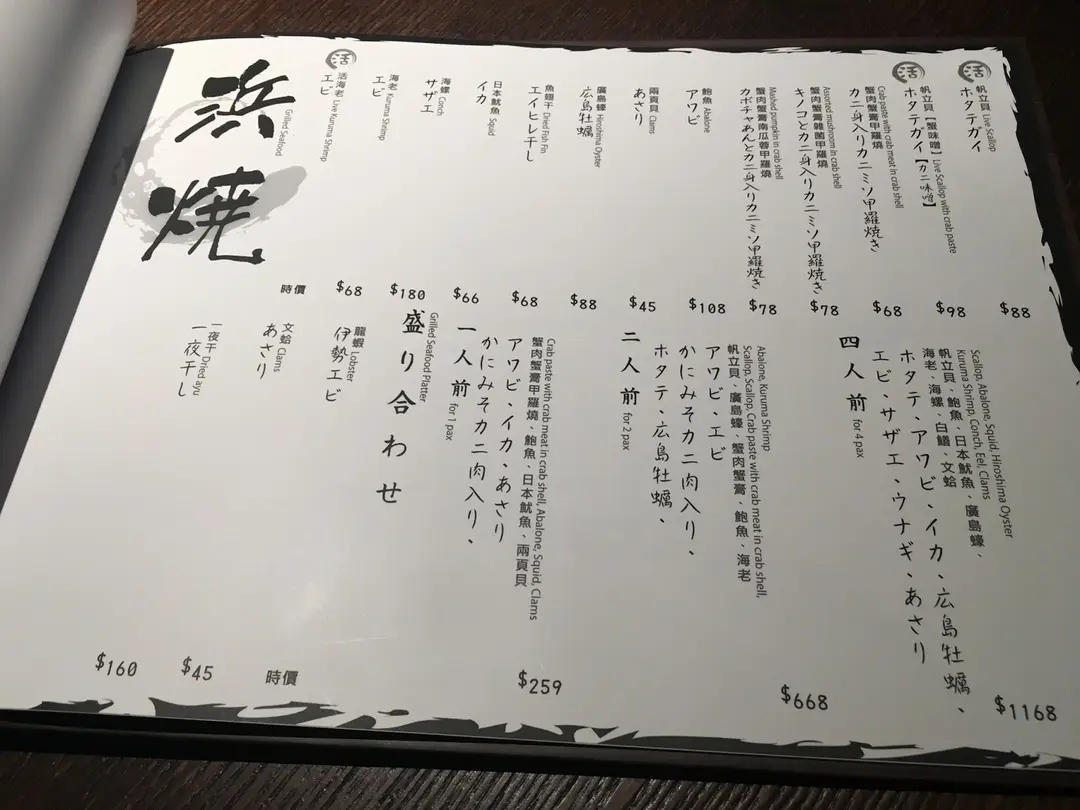 浜焼
Grilled Seafood
活
帆立貝 Live Scallop
ホタテガイ
$88
活
帆立貝【蟹味噌】Live Scallop with crab paste
ホタテガイ【カニ味噌】
$98
Crab paste with crab meat in crab shell
蟹肉蟹膏甲羅燒
カニ身入りカニミソ甲羅焼き
$68
Assorted mushroom in crab shell
蟹肉蟹膏雜菌甲羅燒
キノコとカニ身入りカニミソ甲羅焼き
$78
Mashed pumpkin in crab shell
蟹肉蟹膏南瓜蓉甲羅燒
カボチャあんとカニ身入りカニミソ甲羅焼き
$78
鮑魚 Abalone
アワビ
$108
兩頁貝 Clams
あさり
$45
廣島蠔 Hiroshima Oyster
広島牡蠣
$88
魚翅干 Dried Fish Fin
エイヒレ干し
$68
日本魷魚 Squid
イカ
$66
海螺 Conch
サザエ
$180
海老 Kuruma Shrimp
エビ
$68
活
活海老 Live Kuruma Shrimp
エビ
時價
四人前 for 4 pax
Scallop, Abalone, Squid, Hiroshima Oyster
Kuruma Shrimp, Conch, Eel, Clams
帆立貝、鮑魚、日本魷魚、廣島蠔、
海老、海螺、白鱔、文蛤
ホタテ・アワビ・イカ・広島牡蠣、
エビ・サザエ・ウナギ・あさり
$1168
二人前 for 2 pax
Abalone, Kuruma Shrimp
Scallop, Scallop, Crab paste with crab meat in crab shell,
帆立貝、廣島蠔、蟹肉蟹膏、鮑魚、海老
アワビ・エビ
かにみそカニ肉入り、
ホタテ・広島牡蠣、
$668
盛り合わせ
Grilled Seafood Platter
一人前 for 1 pax
Crab paste with crab meat in crab shell, Abalone, Squid, Clams
蟹肉蟹膏甲羅燒、鮑魚、日本魷魚、兩頁貝
アワビ・イカ・あさり
かにみそカニ肉入り、
$259
龍蝦 Lobster
伊勢エビ
時價
文蛤 Clams
あさり
$45
一夜干 Dried ayu
一夜干し
$160